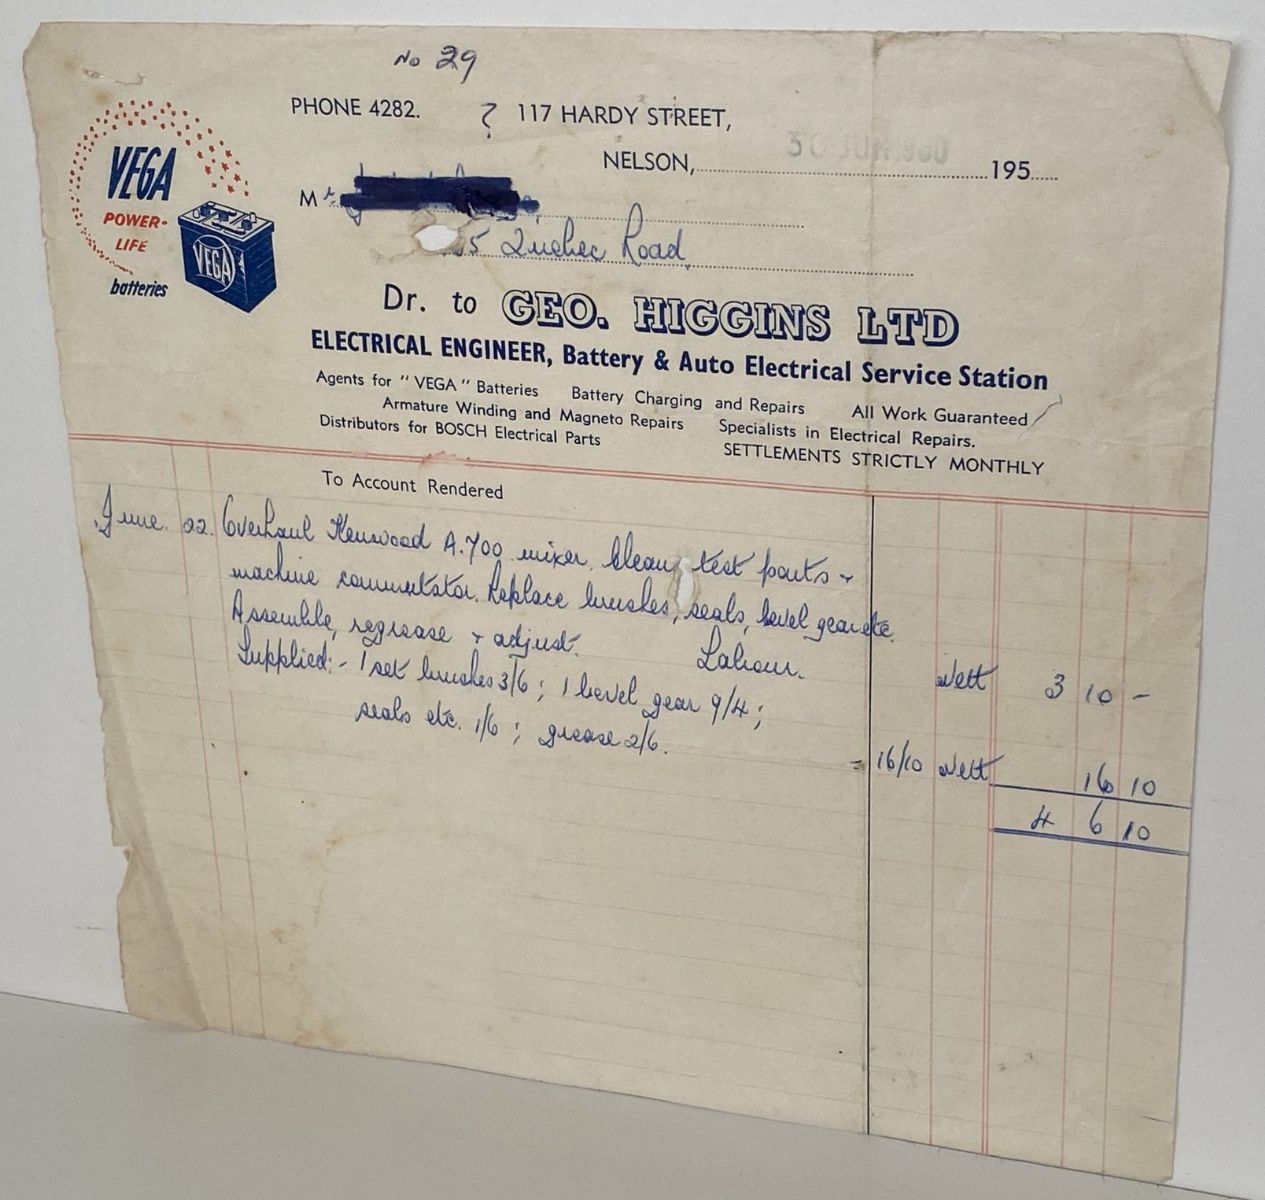 No 29
PHONE 4282. ? 117 HARDY STREET,
NELSON, 30 JUN 1960 195
Mr
5 Quebec Road,
VEGA
POWER-
LIFE
batteries
VEGA
Dr. to GEO. HIGGINS LTD
ELECTRICAL ENGINEER, Battery & Auto Electrical Service Station
Agents for "VEGA" Batteries Battery Charging and Repairs All Work Guaranteed
Armature Winding and Magneto Repairs Specialists in Electrical Repairs.
Distributors for BOSCH Electrical Parts SETTLEMENTS STRICTLY MONTHLY
To Account Rendered
June. 22. Overhaul Kenwood A.700 mixer, Clean, test parts +
machine commutator. Replace brushes, seals, bevel gear etc.
Assemble, regrease + adjust. Labour. Nett 3 10 -
Supplied:- 1 set brushes 3/6; 1 bevel gear 9/4;
seals etc. 1/6; grease 2/6.
= 16/10 Nett 16 10
4 6 10